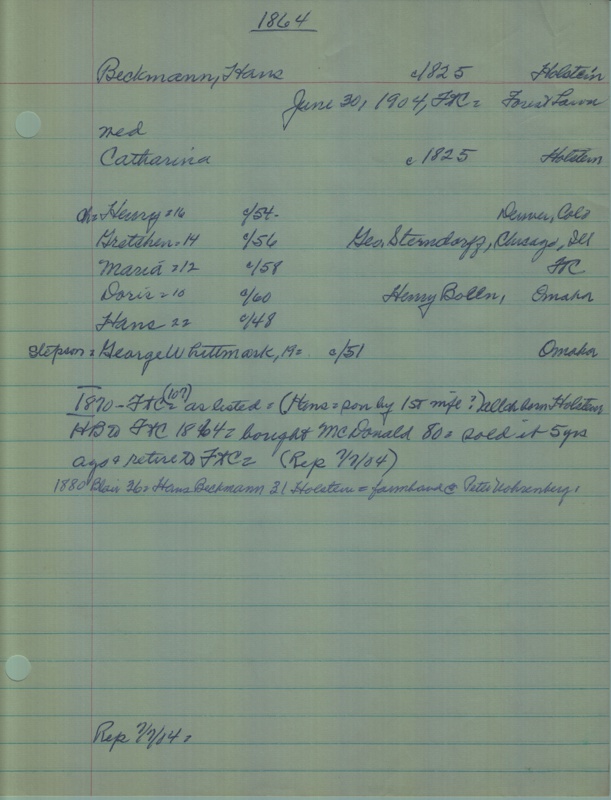 1864
Beckmann, Hans c1825 Holstein
June 30, 1904, FTC= Forest Lawn
med
Catharina c1825 Holstein
ch= Henry=16 c/54- Denver, Colo
Gretchen=14 c/56 Geo. Sterndorff, Chicago, Ill
Maria=12 c/58 FTC
Doris=10 c/60 Henry Bolln, Omaha
Hans 22 c/48
Stepson= George Whittmark, 19= c/51 Omaha
1870-FTC= (107) as listed= (Hans=son by 1st wife?) all ch born Holstein
HB to FTC 1864= bought McDonald 80= sold it 5 yrs
ago & retire to FTC= (Rep 7/7/04)
1880 Blair 36= Hans Beckmann 31 Holstein= farmhand @ Peter
Rep 7/7/04=